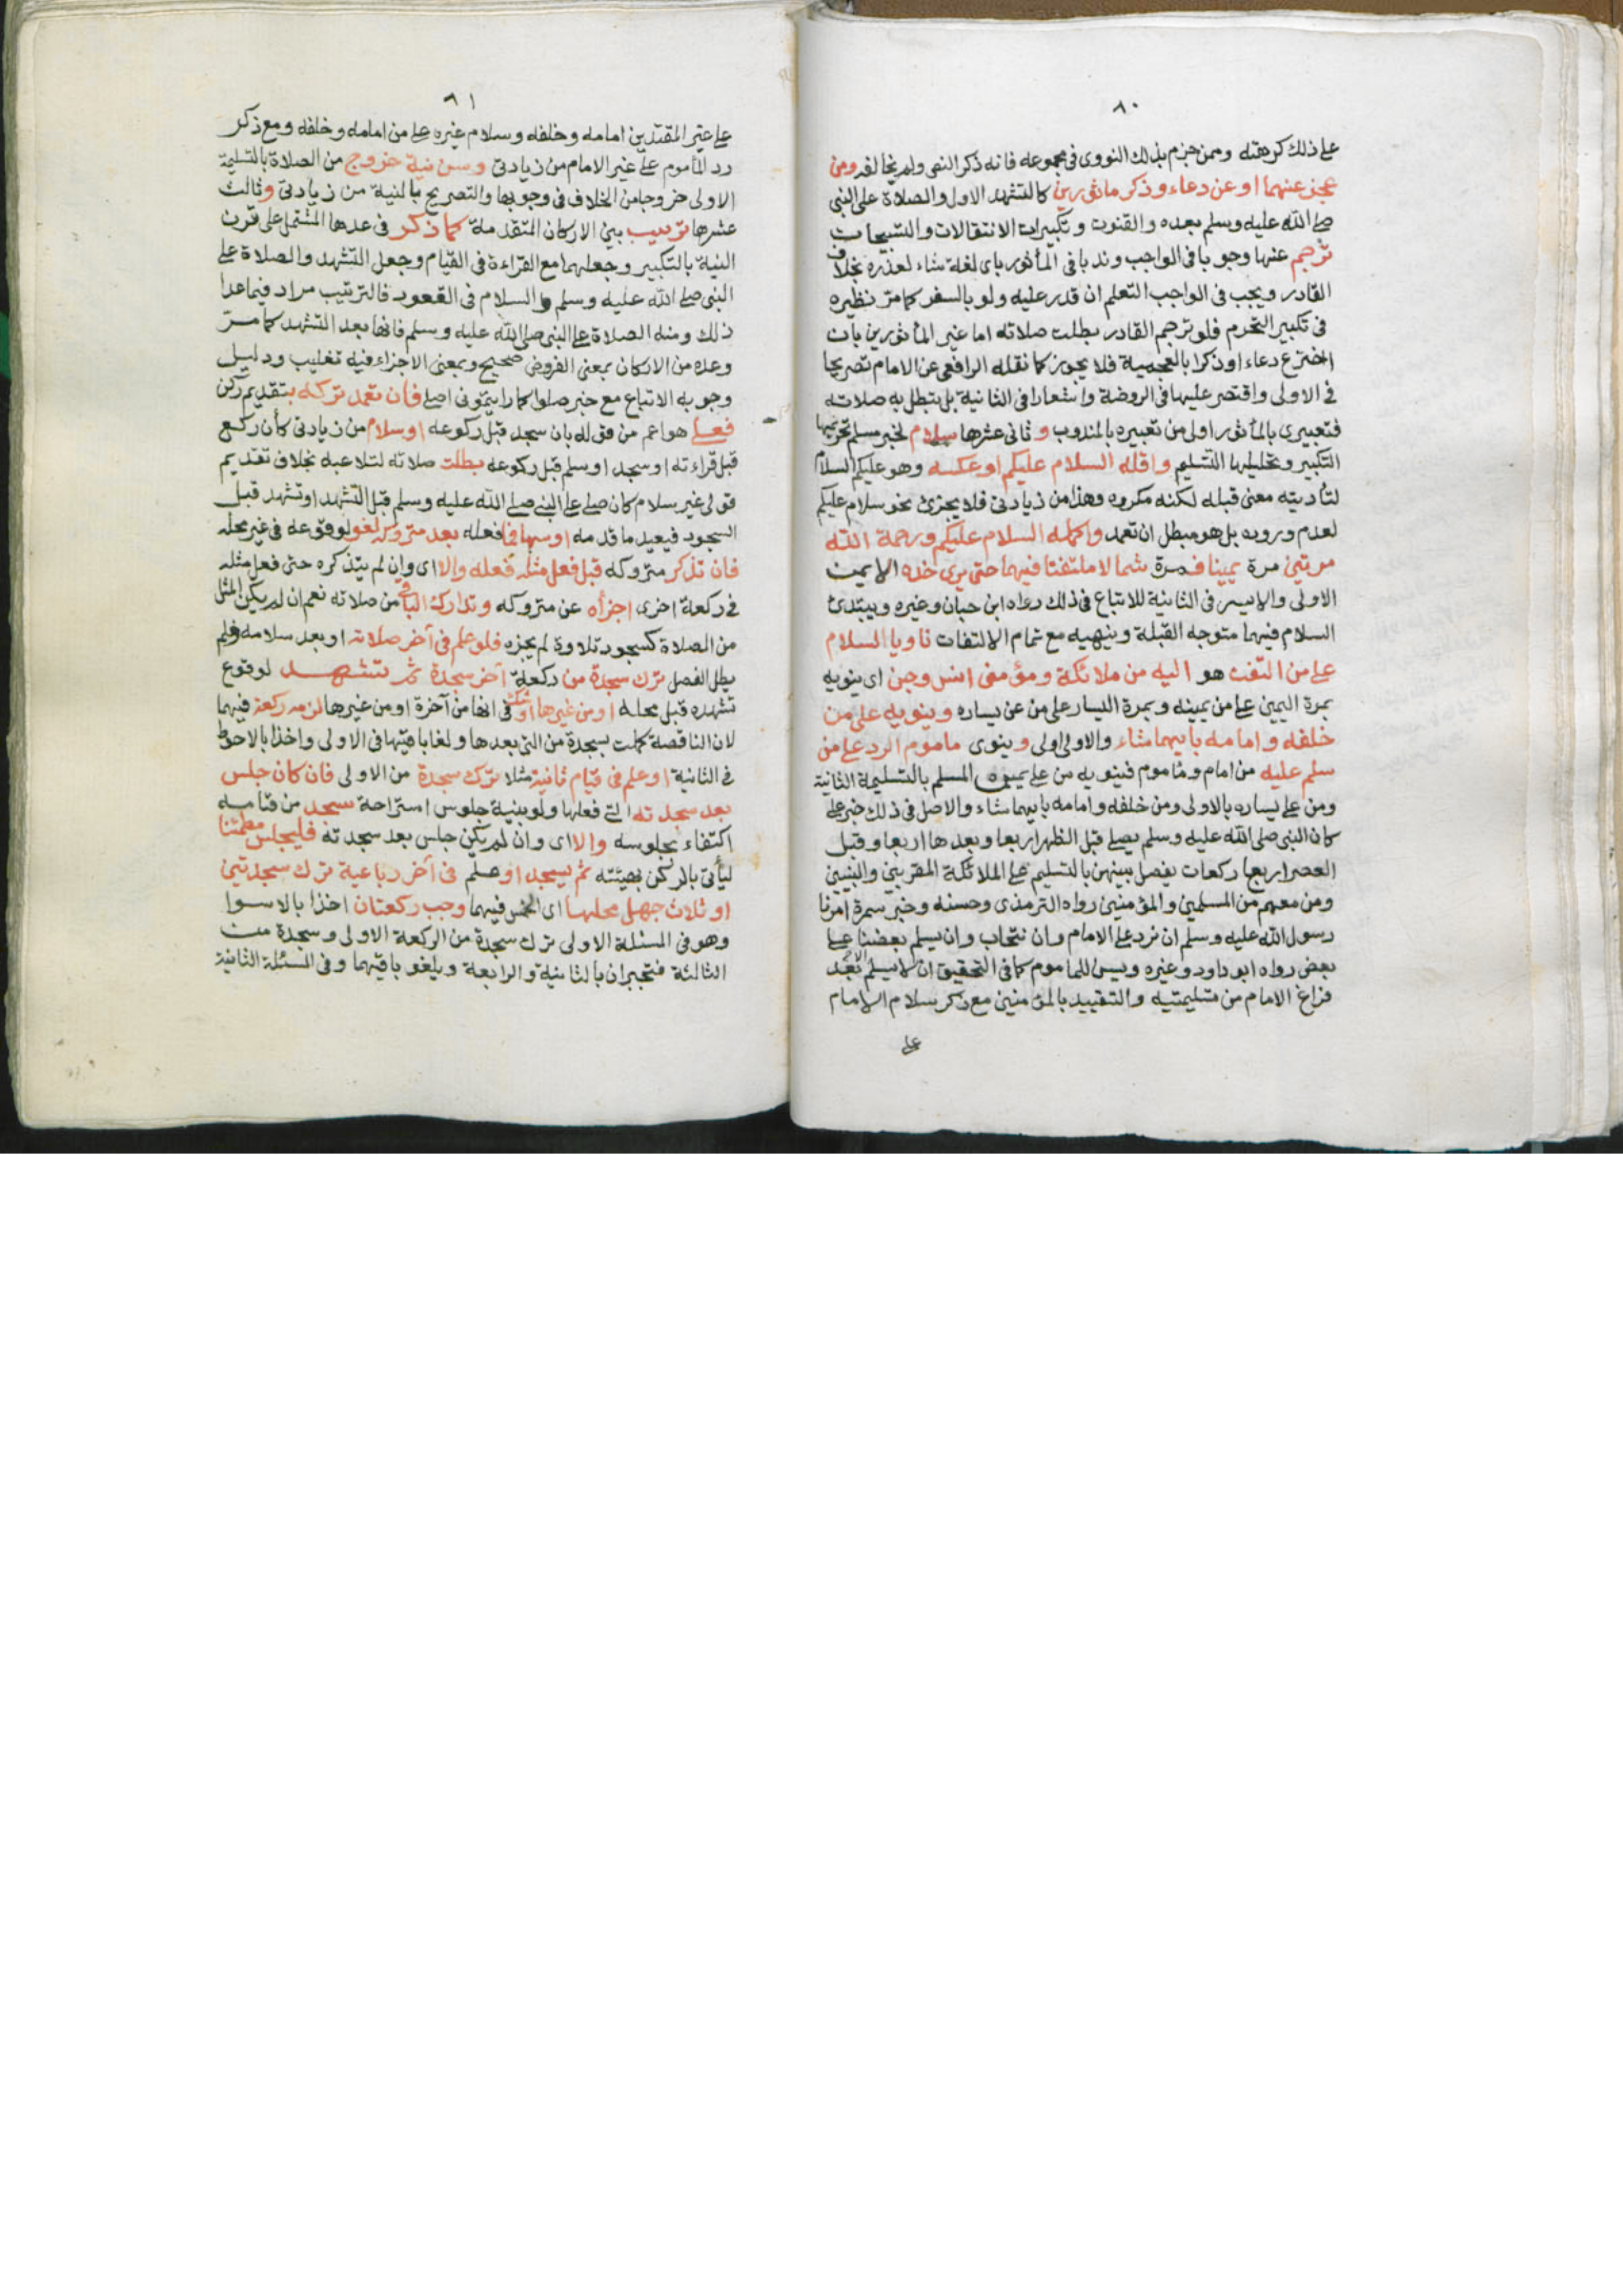 ٨٠
على ذلك كرهته وممن جزم بذلك النووى فى مجموعه فانه ذكر النص ولم يخالفه ومن
عجز عنهما او عن دعاء وذكر ماثورين كالتشهد الاول والصلاة على النبى
صلى الله عليه وسلم بعده والقنوت وتكبيرات الانتقالات والتسبيحات
ترجم عنها وجوبا فى الواجب وندبا فى المأثور باى لغة شاء لعذره بخلاف
القادر ويجب فى الواجب التعلم ان قدر عليه ولو بالسفر كما مر نظيره
فى تكبير التحرم فلو ترجم القادر بطلت صلاته اما غير المأثورين بان
اخترع دعاء او ذكرا بالعجمية فلا يجوز كما نقله الرافعى عن الامام تصريحا
فى الاولى واقتصر عليها فى الروضة واشعارا فى الثانية بل تبطل به صلاته
فتعبيرى بالمأثور اولى من تعبيره بالمندوب و ثانى عشرها سلام لخبر مسلم تحريمها
التكبير وتحليلها التسليم واقله السلام عليكم او عكسه وهو عليكم السلام
لتأديته معنى قبله لكنه مكروه وهذا من زيادتى فلا يجزئ نحو سلام عليكم
لعدم وروده بل هو مبطل ان تعمد واكمله السلام عليكم ورحمة الله
مرتين مرة يمينا فمرة شمالا ملتفتا فيهما حتى يرى خده الايمن
الاولى والايسر فى الثانية للاتباع فى ذلك رواه ابن حبان وغيره ويبتدئ
السلام فيهما متوجه القبلة وينهيه مع تمام الالتفات ناويا السلام
على من التفت هو اليه من ملائكة ومؤمنى انس وجن اى ينويه
بمرة اليمين على من يمينه وبمرة اليسار على من عن يساره وينويه على من
خلفه وامامه بايهما شاء والاولى اولى وينوى ماموم الرد على من
سلم عليه من امام وماموم فينويه من على يمين المسلم بالتسليمة الثانية
ومن على يساره بالاولى ومن خلفه وامامه بايهما شاء والاصل فى ذلك خبر على
كان النبى صلى الله عليه وسلم يصلى قبل الظهر اربعا وبعدها اربعا وقبل
العصر اربع ركعات يفصل بينهن بالتسليم على الملائكة المقربين والنبيين
ومن معهم من المسلمين والمؤمنين رواه الترمذى وحسنه وخبر سمرة امرنا
رسول الله عليه وسلم ان نرد على الامام وان نتحاب وان يسلم بعضنا على
بعض رواه ابو داود وغيره ويسن للماموم كما فى التحقيق ان لا يسلم الا بعد
فراغ الامام من تسليمتيه والتقييد بالمؤمنين مع ذكر سلام الامام
على
٨١
على غير المقتدين امامه وخلفه وسلام غيره على من امامه وخلفه ومع ذكر
رد المأموم على غير الامام من زيادتى وسن نية خروج من الصلاة بالتسليمة
الاولى خروجا من الخلاف فى وجوبها والتصريح بالنية من زيادتى وثالث
عشرها ترتيب بين الاركان المتقدمة كما ذكر فى عدها المشتمل على قرن
النية بالتكبير وجعلهما مع القراءة فى القيام وجعل التشهد والصلاة على
النبى صلى الله عليه وسلم والسلام فى القعود فالترتيب مراد فيما عدا
ذلك ومنه الصلاة على النبى صلى الله عليه وسلم فانها بعد التشهد كما مر
وعده من الاركان بمعنى الفروض صحيح وبمعنى الاجزاء فيه تغليب ودليل
وجوبه الاتباع مع خبر صلوا كما رايتمونى اصلى فان تعمد تركه بتقديم ركن
فعلى هو اعم من قوله بان سجد قبل ركوعه او سلام من زيادتى كأن ركع
قبل قراءته او سجد او سلم قبل ركوعه بطلت صلاته لتلاعبه بخلاف تقديم
قولى غير سلام كان صلى على النبى صلى الله عليه وسلم قبل التشهد او تشهد قبل
السجود فيعيد ما قدمه او سها فما فعله بعد متروكه لغو لوقوعه فى غير محله
فان تذكر متروكه قبل فعل مثله فعله والا اى وان لم يتذكره حتى فعل مثله
فى ركعة اخرى اجزأه عن متروكه وتدارك الباقى من صلاته نعم ان لم يكن المثل
من الصلاة كسجود تلاوة لم يجزه فلو علم فى آخر صلاته او بعد سلامه ولم
يطل الفصل ترك سجدة من ركعة آخر سجدة ثم تشهد لوقوع
تشهده قبل محله او من غيرها او شك فى انها من آخرة او من غيرها لزمه ركعة فيهما
لان الناقصة كملت بسجدة من التى بعدها ولغا باقيها فى الاولى واخذا بالاحوط
فى الثانية او علم فى قيام ثانية مثلا ترك سجدة من الاولى فان كان جلس
بعد سجدته التى فعلها ولو بنية جلوس استراحة سجد من قيامه
اكتفاء بجلوسه والا اى وان لم يكن جلس بعد سجدته فليجلس مطمئنا
ليأتى بالركن بهيئته ثم يسجد او علم فى آخر رباعية ترك سجدتين
او ثلاث جهل محلها اى الخمس فيهما وجب ركعتان اخذا بالاسوا
وهو فى المسئلة الاولى ترك سجدة من الركعة الاولى وسجدة من
الثالثة فتجبران بالثانية والرابعة ويلغو باقيهما وفى المسئلة الثانية